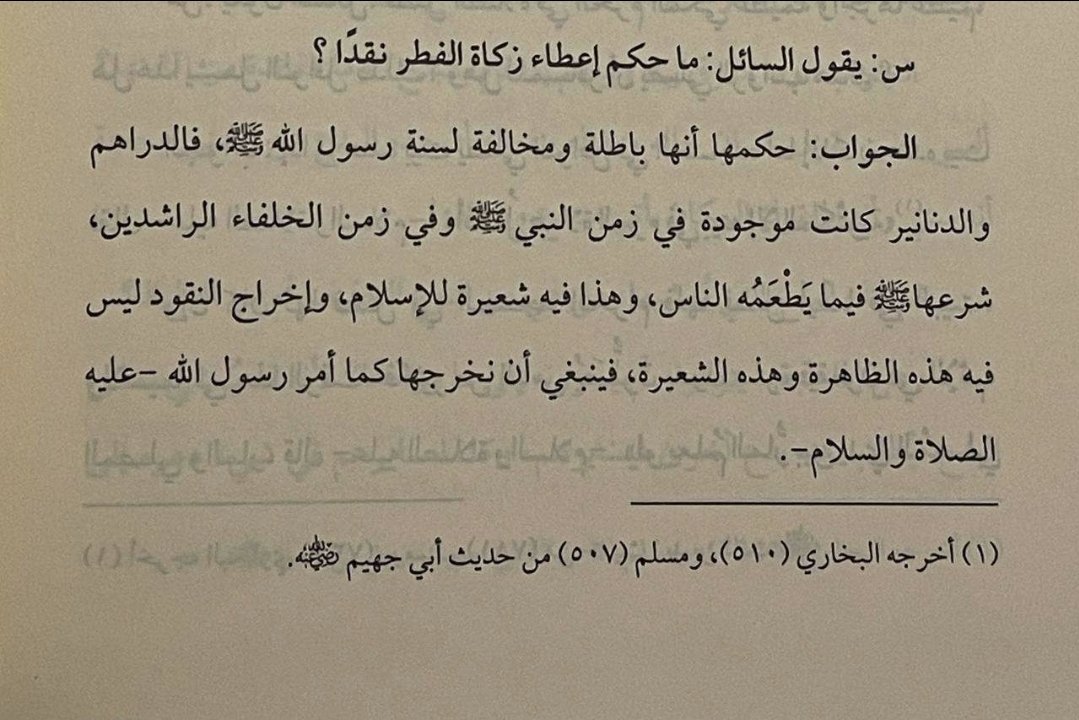 س: يقول السائل: ما حكم إعطاء زكاة الفطر نقدًا ؟
الجواب: حكمها أنها باطلة ومخالفة لسنة رسول الله ﷺ، فالدراهم
والدنانير كانت موجودة في زمن النبي ﷺ وفي زمن الخلفاء الراشدين،
شرعها ﷺ فيما يَطْعَمُه الناس، وهذا فيه شعيرة للإسلام، وإخراج النقود ليس
فيه هذه الظاهرة وهذه الشعيرة، فينبغي أن نخرجها كما أمر رسول الله -عليه
الصلاة والسلام-.
(١) أخرجه البخاري (٥١٠)، ومسلم (٥٠٧) من حديث أبي جهيم رضي الله عنه.